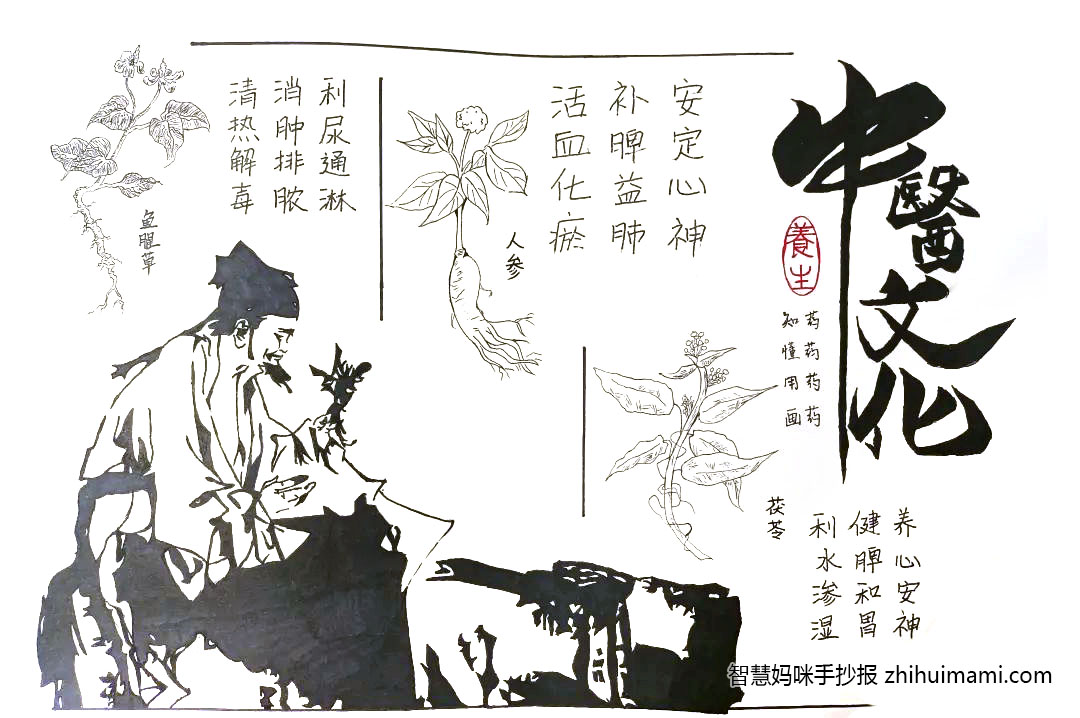 中醫文化
養生
知药
懂药
用药
画药
养心安神
健脾和胃
利水渗湿
茯苓
安定心神
补脾益肺
活血化瘀
人参
利尿通淋
消肿排脓
清热解毒
鱼腥草
智慧妈咪手抄报 zhihuimami.com